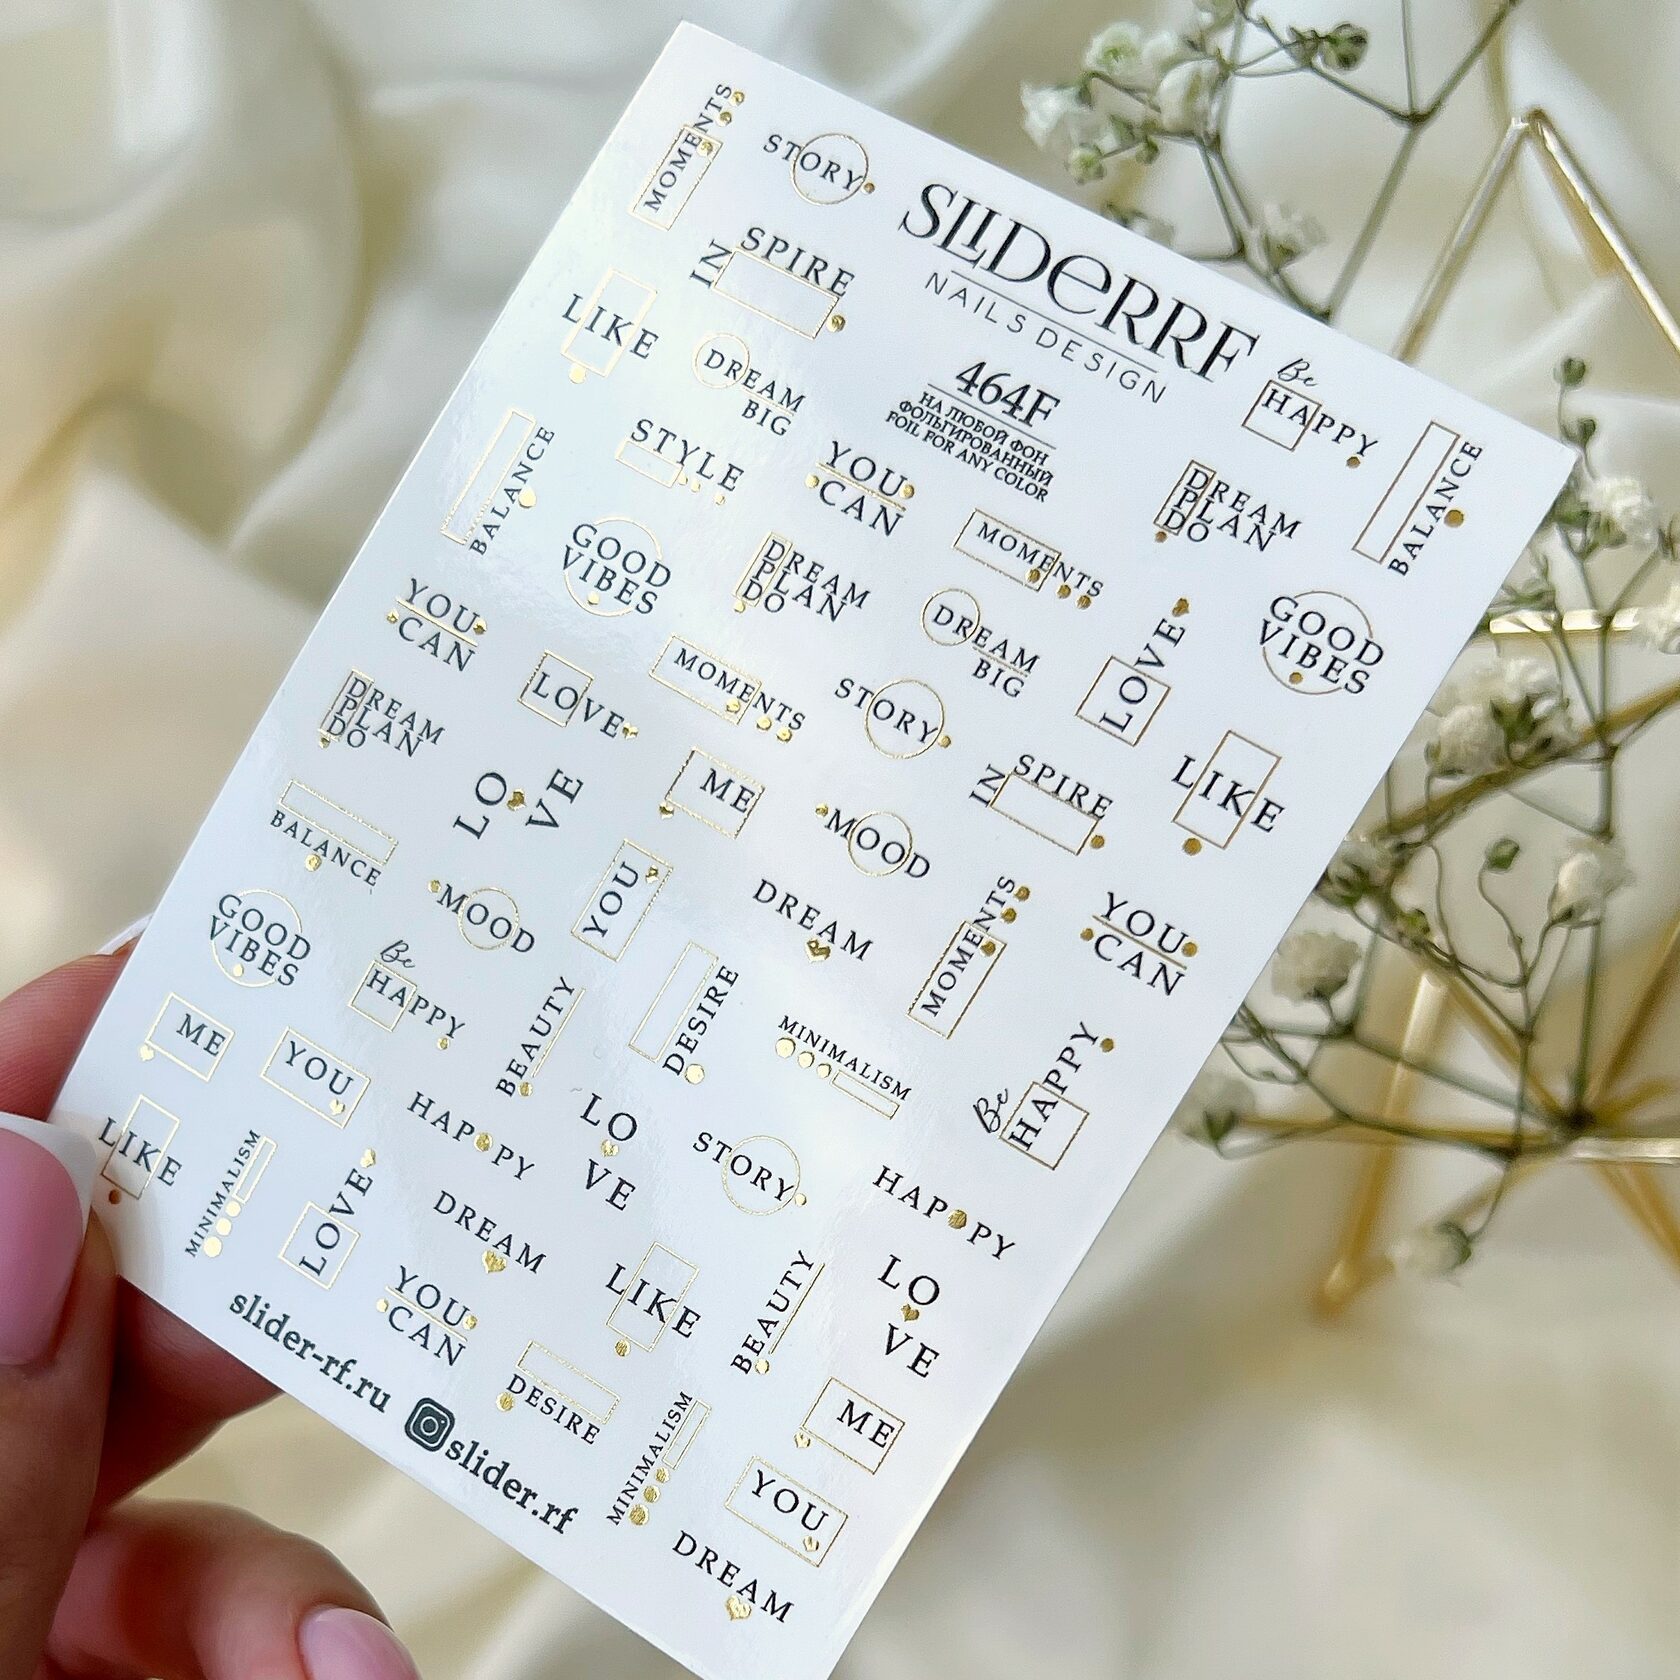 MOMENTS
STORY
SLIDERRF
NAILS DESIGN
464F
НА ЛЮБОЙ ФОН
ФОЛЬГИРОВАННЫЙ
FOIL FOR ANY COLOR
IN
SPIRE
LIKE
DREAM
BIG
Be
HAPPY
BALANCE
BALANCE
STYLE
YOU
CAN
DREAM
PLAN
DO
MOMENTS
GOOD
VIBES
DREAM
PLAN
DO
DREAM
BIG
LOVE
GOOD
VIBES
YOU
CAN
LOVE
MOMENTS
STORY
DREAM
PLAN
DO
ME
IN
SPIRE
LIKE
LO
VE
MOOD
BALANCE
MOOD
YOU
DREAM
MOMENTS
YOU
CAN
GOOD
VIBES
Be
HAPPY
BEAUTY
DESIRE
MINIMALISM
Be
HAPPY
ME
YOU
HAPPY
LO
VE
STORY
HAPPY
LIKE
MINIMALISM
LOVE
DREAM
LIKE
BEAUTY
LO
VE
YOU
CAN
DESIRE
MINIMALISM
ME
YOU
DREAM
slider-rf.ru
slider.rf